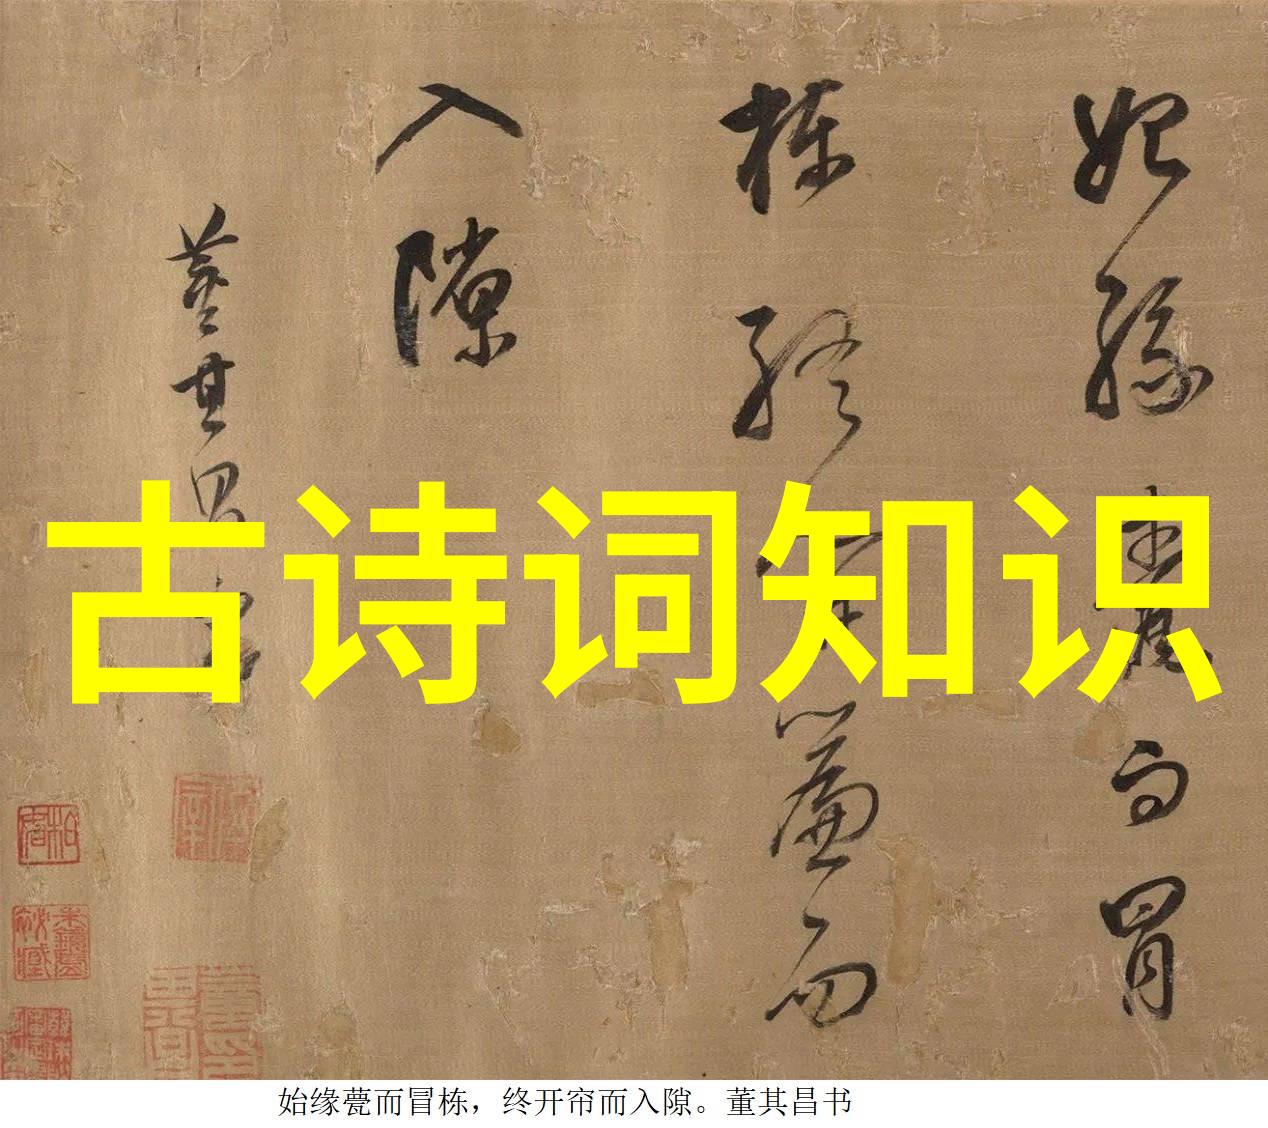 始緣甍而冒
棟終開簾而
入隙
董其昌書
古诗词知识
始缘甍而冒栋，终开帘而入隙。董其昌书